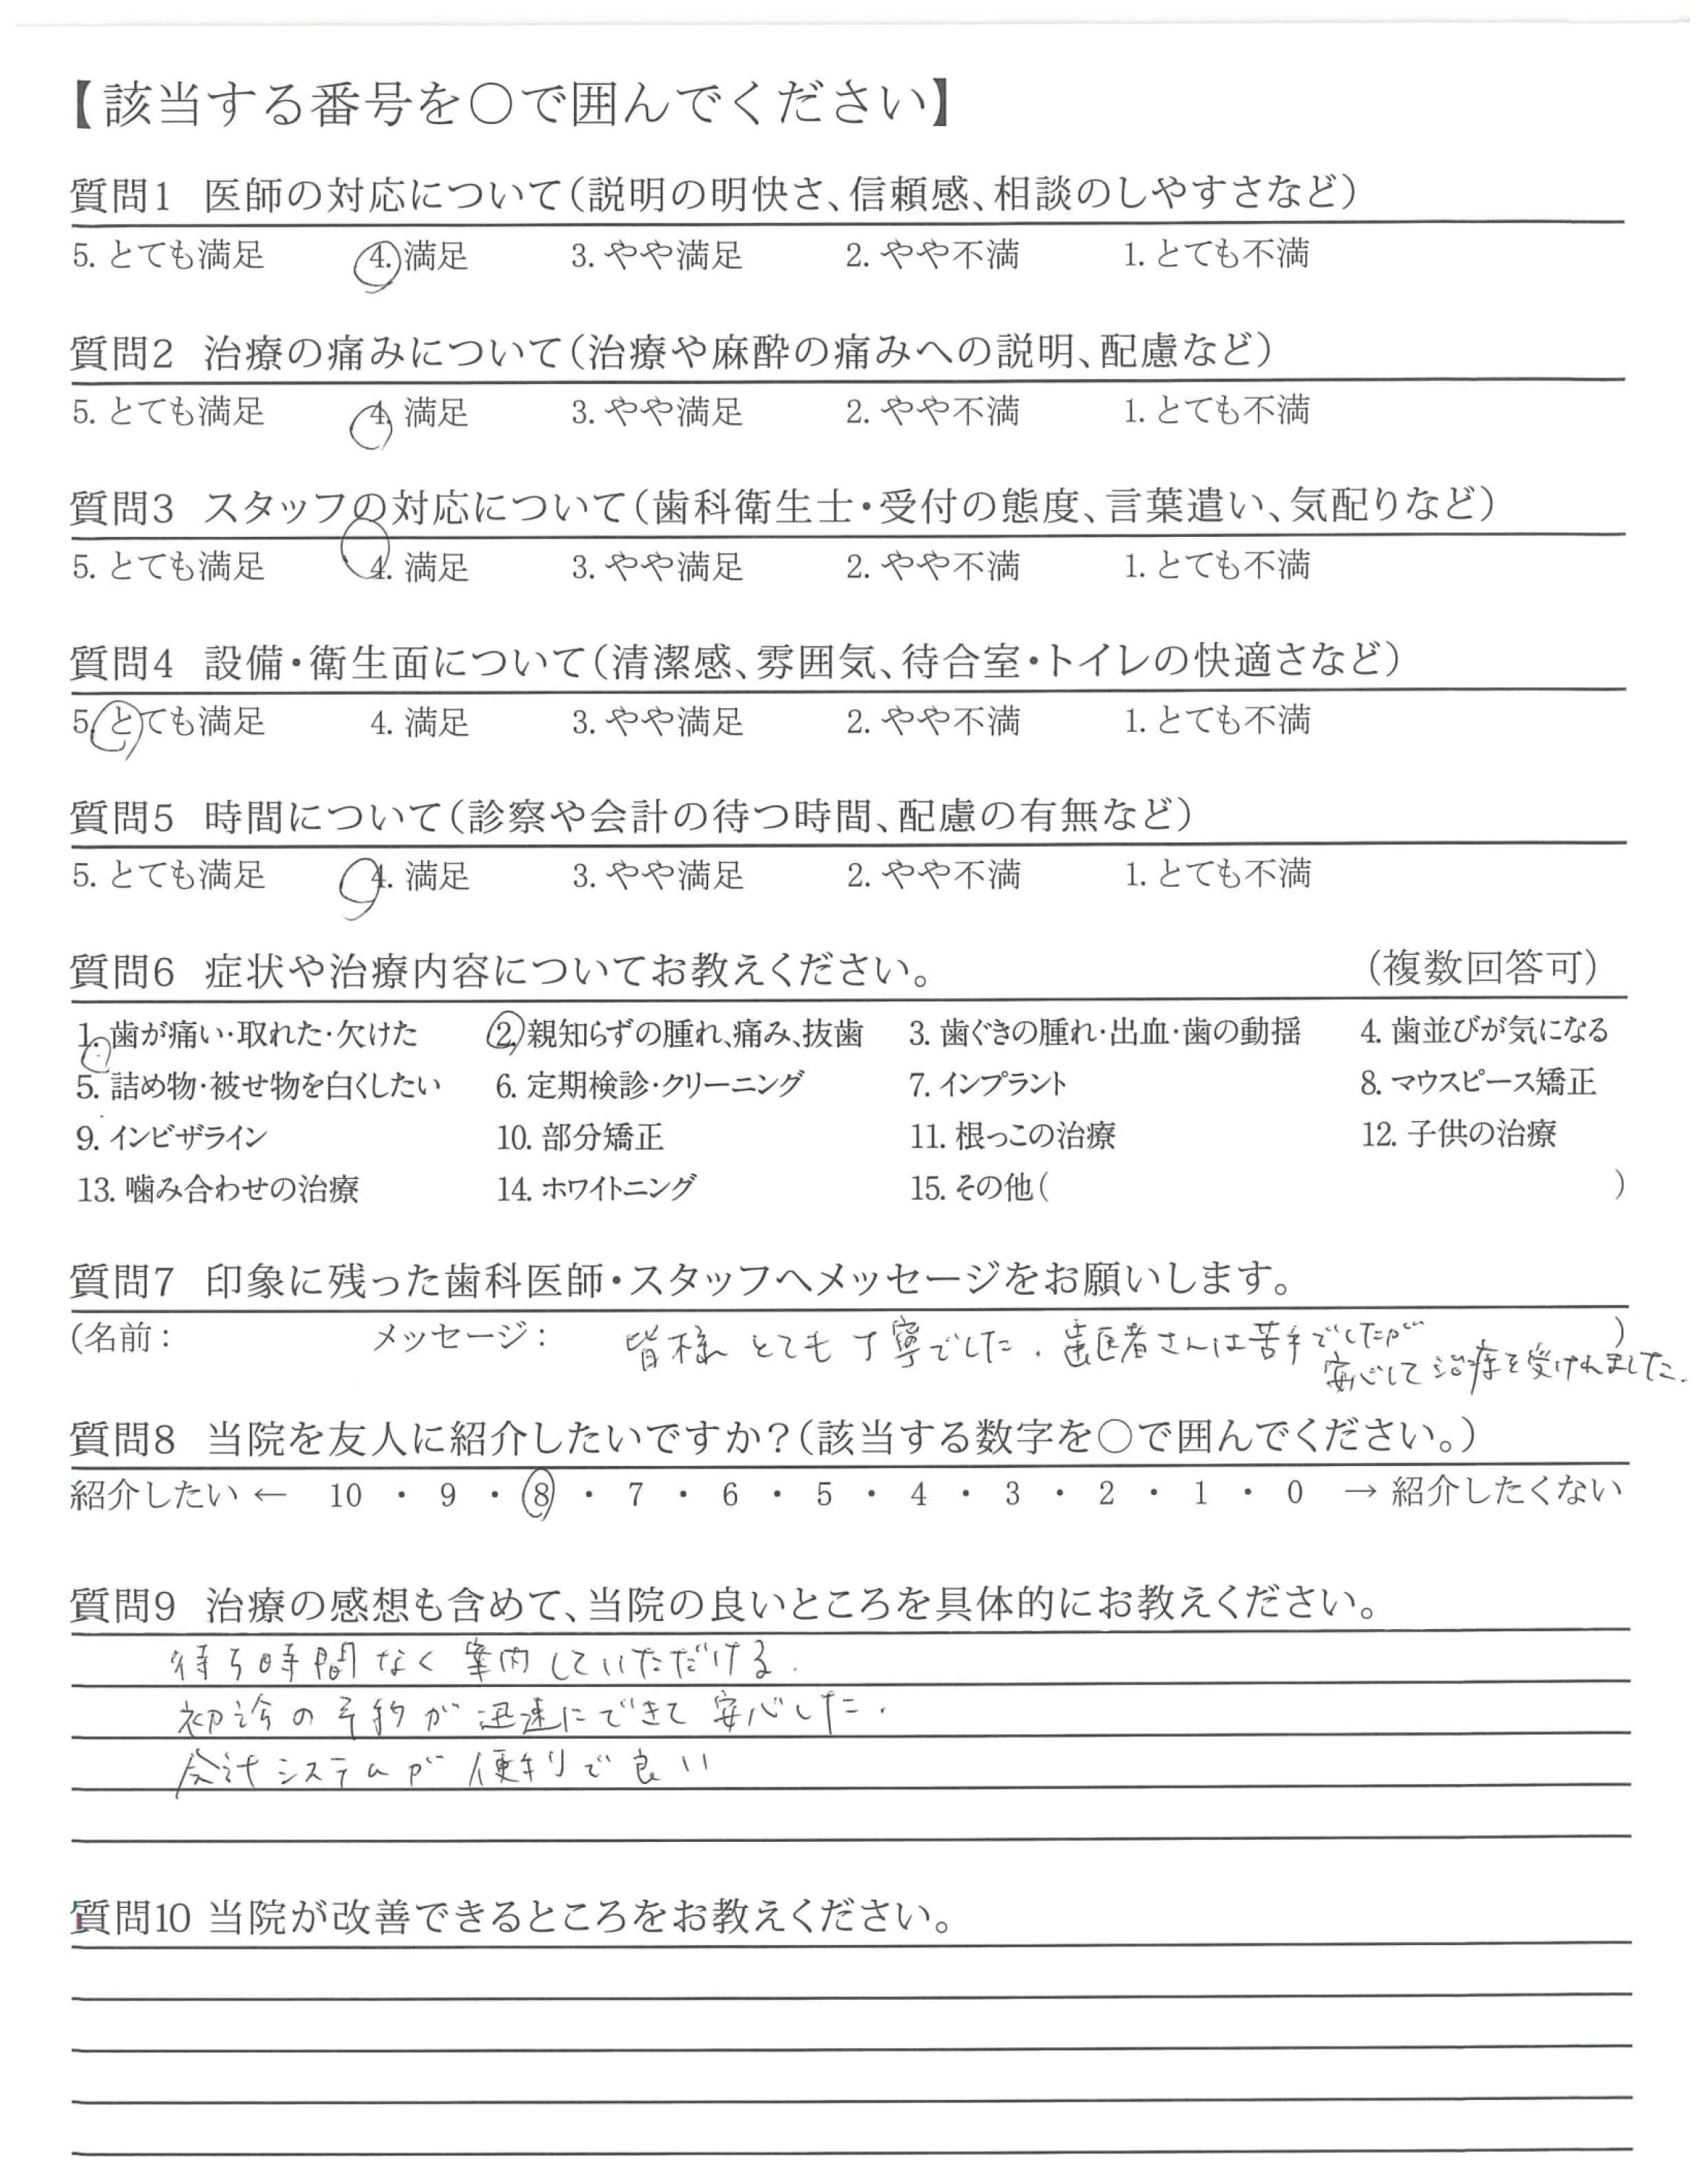 【該当する番号を○で囲んでください】
質問1 医師の対応について(説明の明快さ、信頼感、相談のしやすさなど)
5. とても満足 4. 満足 3. やや満足 2. やや不満 1. とても不満
質問2 治療の痛みについて(治療や麻酔の痛みへの説明、配慮など)
5. とても満足 4. 満足 3. やや満足 2. やや不満 1. とても不満
質問3 スタッフの対応について(歯科衛生士・受付の態度、言葉遣い、気配りなど)
5. とても満足 4. 満足 3. やや満足 2. やや不満 1. とても不満
質問4 設備・衛生面について(清潔感、雰囲気、待合室・トイレの快適さなど)
5. とても満足 4. 満足 3. やや満足 2. やや不満 1. とても不満
質問5 時間について(診察や会計の待つ時間、配慮の有無など)
5. とても満足 4. 満足 3. やや満足 2. やや不満 1. とても不満
質問6 症状や治療内容についてお教えください。 (複数回答可)
1. 歯が痛い・取れた・欠けた 2. 親知らずの腫れ、痛み、抜歯 3. 歯ぐきの腫れ・出血・歯の動揺 4. 歯並びが気になる
5. 詰め物・被せ物を白くしたい 6. 定期検診・クリーニング 7. インプラント 8. マウスピース矯正
9. インビザライン 10. 部分矯正 11. 根っこの治療 12. 子供の治療
13. 噛み合わせの治療 14. ホワイトニング 15. その他( )
質問7 印象に残った歯科医師・スタッフへメッセージをお願いします。
(名前: メッセージ: 皆様とても丁寧でした. 歯医者さんは苦手でしたが )
安心して治療を受けれました.
質問8 当院を友人に紹介したいですか?(該当する数字を○で囲んでください。)
紹介したい ← 10 ・ 9 ・ 8 ・ 7 ・ 6 ・ 5 ・ 4 ・ 3 ・ 2 ・ 1 ・ 0 → 紹介したくない
質問9 治療の感想も含めて、当院の良いところを具体的にお教えください。
待ち時間なく案内していただける.
初診の予約が迅速にできて安心した.
会計システムが便利で良い
質問10 当院が改善できるところをお教えください。